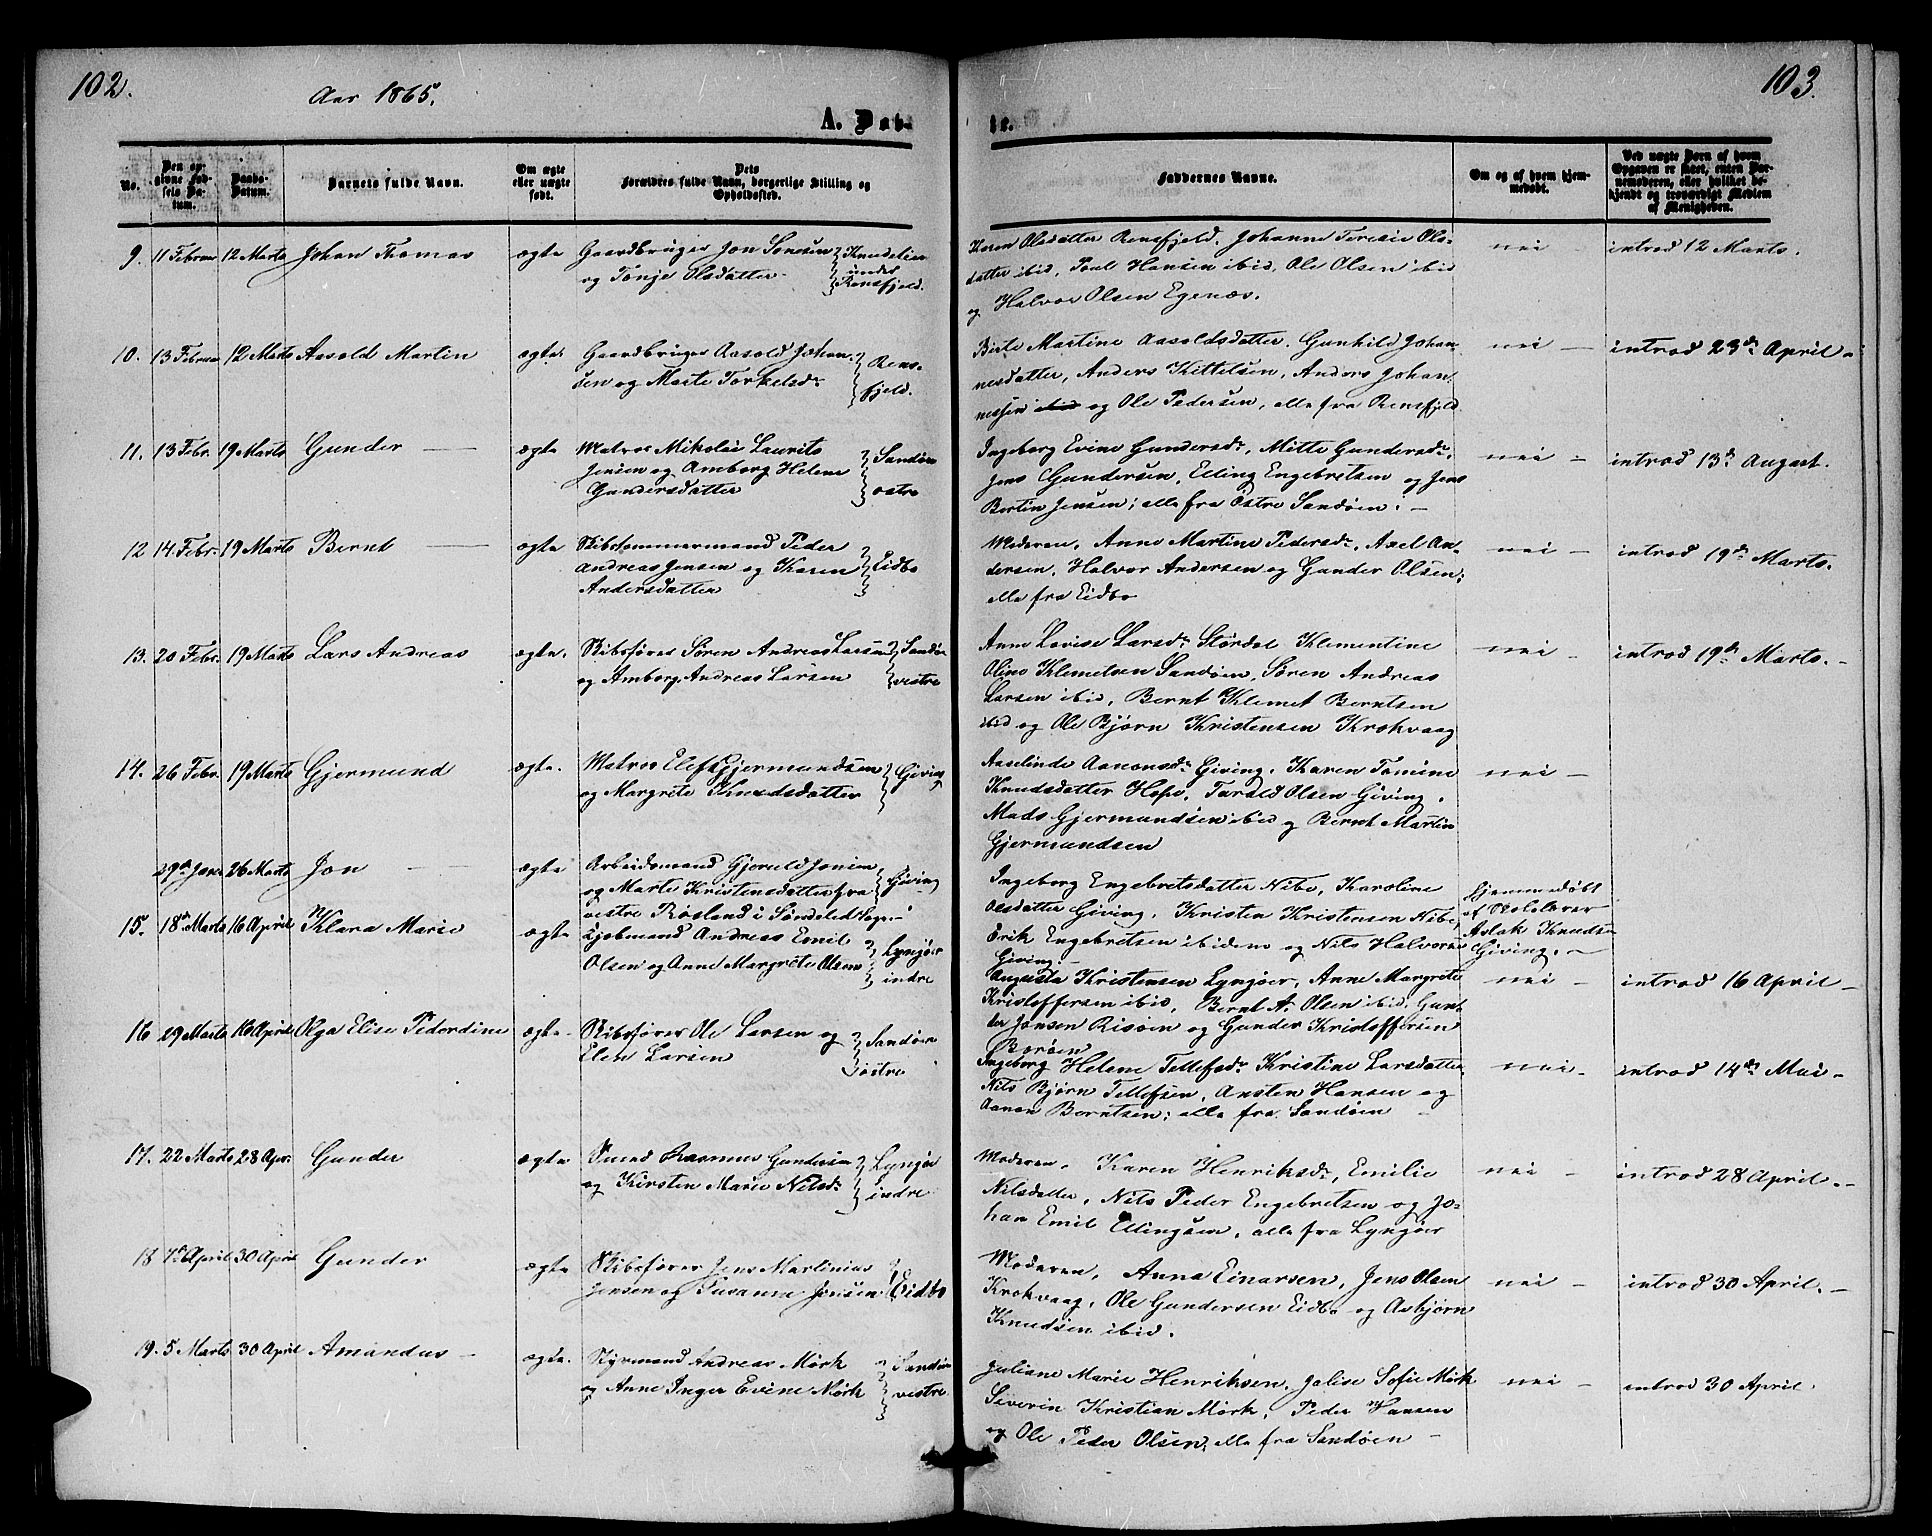 102.
Aar 1865.
A. Døb-
No.
Den op-
givne Fød-
sels Da-
tum.
Daabs-
Datum.
Barnets fulde Navn.
Om ægte
eller uægte
født.
Dets
Forældres fulde Navn, borgerlige Stilling og
Opholdssted.
9. 11 Februar 12 Marts Johan Thomas ægte Gaardbruger Jon Jonsen
og Tonje Olsdatter
under
Rensfjeld.
10. 13 Februar 12 Marts Aasold Martin ægte Gaardbruger Aasold Johan-
sen og Marte Torkelsdr
Rens-
fjeld.
11. 13 Febr. 19 Marts Gunder ægte Matros Nikolai Laurits
Jensen og Amborg Helene
Gundersdatter
Sandøen
østre
12 14 Febr. 19 Marts Bernt ægte Skibstømmermand Peder
Andreas Jensen og Karen
Andersdatter
Eidbo
13. 20 Febr. 19 Marts Lars Andreas ægte. Skibsfører Søren Andreas Larsen
og Amborg Andreas Larsen
Sandøen
vestre
14. 26 Febr. 19 Marts Gjermund ægte. Matros Elef Gjermundsen
og Margrete Knudsdatter
Giving
29de Jan 26 Marts Jon ægte Arbeidsmand Gjeruld Jonsen
og Marte Kristensdatter fra
vestre Røsland i Søndeled Sogn.
Giving
15. 18de Marts 16 April Klara Marie ægte Andreas Emil
Olsen og Anne Margrete Olsen
Lyngøer
indre
16 29 Marts 16 April Olga Elise Pedordine ægte Skibsfører Ole Larsen og
Elen Larsen
Sandøen
østre
17. 22 Marts 28 Apr. Gunder ægte Smed Rasmus Gundersen
og Kirsten Marie Nilsdr
Lyngøer
indre
18 7de April 30 April Gunder ægte Skibsfører Jens Martinius
Jensen og Susanne Jensen
Eidbo
19. 5 Marts 30 April Amandus ægte. Styrmand Andreas Mørk
og Anne Inger Evine Mørk
Sandøen
vestre
103.
te.
Faddernes Navne.
Om og af hvem hjem-
medøbt.
Ved uægte Børn af hvem
Opgaven er skeet, enten Bar-
nemoderen, eller hvilket be-
kjendt og troværdigt Medlem
af Menigheden.
Karen Olsdatter Rensfjeld, Johanne Teresie Ols-
datter ibid, Poul Hansen ibid, Ole Olsen ibid
og Halvor Olsen Egenæs.
nei – introd 12 Marts.
Birte Martine Aasoldsdatter, Gunhild Johan-
nesdatter, Anders Kittelsen, Anders Johan-
nessen ibid og Ole Pedersen, alle fra Rensfjeld.
nei – introd 23de April –
Ingeborg Evine Gundersdr, Mitte Gundersdr,
Jens Gundersen, Elling Engebretsen og Jens
Bertin Jensen; alle fra Østre Sandøen. –
nei – introd 13de August.
Moderen, Anne Martine Pedersdr, Axel An-
dersen, Halvor Andersen og Gunder Olsen;
alle fra Eidbo
nei – introd 19de Marts.
Anne Lovise Larsdr Stordal Klementine
Oline Klemetsen Sandøen, Søren Andreas
Larsen ibid, Bernt Klemet Berntsen
ibid og Ole Bjørn Kristensen Krokvaag
nei – introd 19de Marts. –
Aaselinde Aanonsdr Giving, Karen Tomine
Knudsdatter Hope, Tarald Olsen Giving,
Mads Gjermundsen ibid og Bernt Martin
Gjermundsen
nei –
Ingeborg Engebretsdatter Nibe, Karoline
Olsdatter Giving, Kristen Kristensen Nibe,
Erik Engebretsen ibidem og Nils Halvorsen
Giving. –
Hjemmedøbt
af Skolelærer
Aslak Knudsen
Giving. –
Augusta Kristensen Lyngøer, Anne Margrete
Kristoffersen ibid, Bernt A. Olsen ibid, Gun-
der Jensen Risøen og Gunder Kristoffersen
Borøen
nei – introd 16 April –
Ingeborg Helene Tellefsdr Kristine Larsdatter,
Nils Bjørn Tellefsen, Ansten Hansen og
Aanon Berntsen; alle fra Sandøen
nei – introd 14de Mai –
Moderen, Karen Henriksdr, Emilie
Nilsdatter, Nils Peder Engebretsen og Jo-
han Emil Ellingsen, alle fra Lyngøer
nei – introd 28 April. –
Moderen, Anna Einarsen, Jens Olsen
Krokvaag, Ole Gundersen Eidbo og Asbjørn
Knudsen ibid.
nei – introd 30 April. –
Juliane Marie Henriksen, Jalise Sofie Mørk
Severin Kristian Mørk, Peder Hansen
og Ole Peder Olsen, alle fra Sandøen –
nei – introd 30 April.